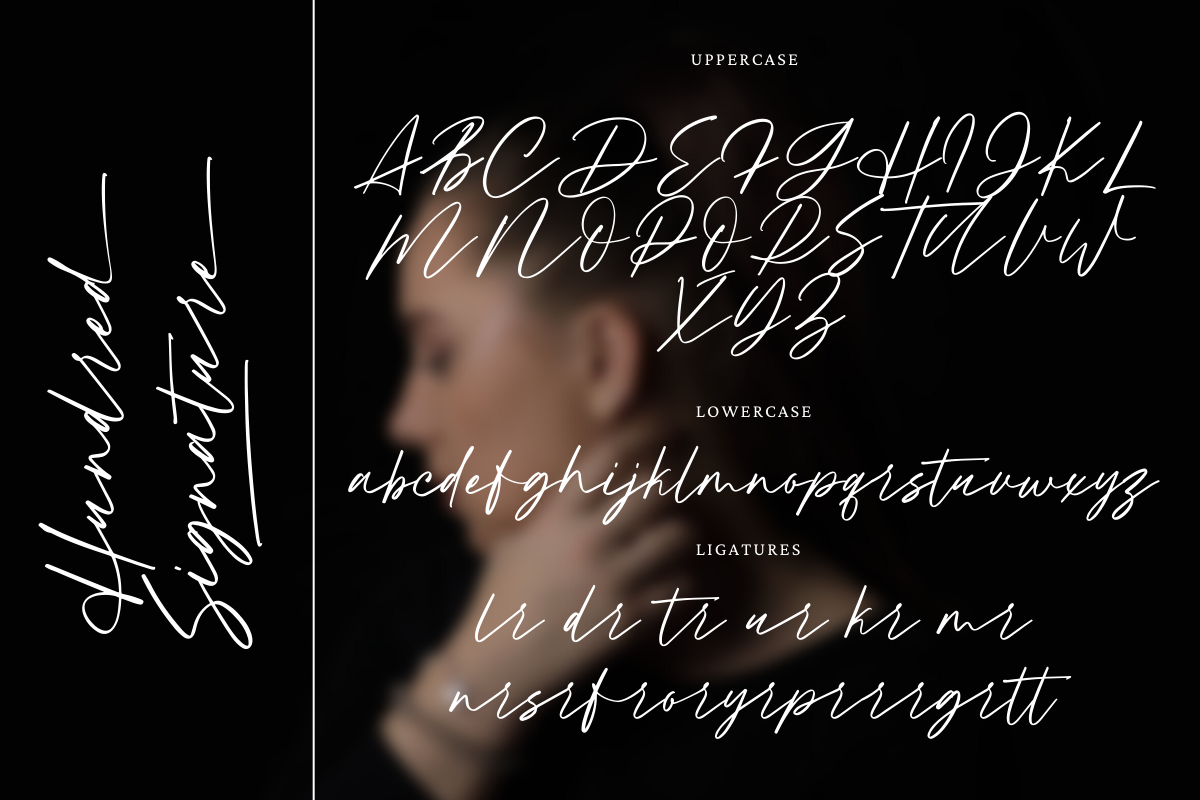 Hundred
Signature
UPPERCASE
ABCDEFGHIJKL
MNOPQRSTUVW
XYZ
LOWERCASE
abcdefghijklmnopqrstuvwxyz
LIGATURES
lr dr tr ur kr mr
nrsrfrroryrprrrgrtt